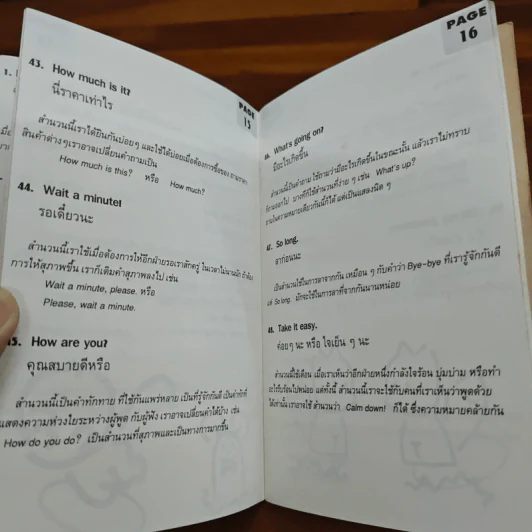 43. How much is it?
นี่ราคาเท่าไร
PAGE
15
สำนวนนี้เราได้ยินกันบ่อยๆ และใช้ได้บ่อยเมื่อต้องการซื้อของ ถามราคา
สินค้าต่างๆเราอาจเปลี่ยนคำถามเป็น
How much is this? หรือ How much?
44. Wait a minute!
รอเดี๋ยวนะ
สำนวนนี้เราใช้เมื่อต้องการให้อีกฝ่ายรอเราสักครู่ ในเวลาไม่นานนัก ถ้าต้อง
การให้สุภาพขึ้น เราก็เติมคำสุภาพลงไป เช่น
Wait a minute, please. หรือ
Please, wait a minute.
45. How are you?
คุณสบายดีหรือ
สำนวนนี้เป็นคำทักทาย ที่ใช้กันแพร่หลาย เป็นที่รู้จักกันดี เป็นคำที่
แสดงความห่วงใยระหว่างผู้พูด กับผู้ฟัง เราอาจเปลี่ยนคำได้บ้าง เช่น
How do you do? เป็นสำนวนที่สุภาพและเป็นทางการมากขึ้น
PAGE
16
46. What's going on?
มีอะไรเกิดขึ้น
สำนวนนี้เป็นคำถาม ใช้ถามว่ามีอะไรเกิดขึ้นในขณะนั้น แล้วเราไม่ทราบ
ก็ถามออกไป บางทีก็ใช้สำนวนที่ง่าย ๆ เช่น What's up?
ถามในความหมายเดียวกันนี้ก็ได้ แต่เป็นแสลงนิด ๆ
47. So long.
ลาก่อนนะ
เป็นสำนวนใช้ในการลาจากกัน เหมือน ๆ กับคำว่า Bye-bye ที่เรารู้จักกันดี
แต่ So long. มักจะใช้ในการลาที่จากกันนานหน่อย
48. Take it easy.
ค่อยๆ นะ หรือ ใจเย็น ๆ นะ
สำนวนนี้ใช้เตือน เมื่อเราเห็นว่าอีกฝ่ายหนึ่งกำลังใจร้อน บุ่มบ่าม หรือทำ
อะไรรีบร้อนไปหน่อย แต่ทั้งนี้ สำนวนนี้เราจะใช้กับคนที่เราเห็นว่าพูดด้วย
ได้เท่านั้น เราอาจใช้ สำนวนว่า Calm down! ก็ได้ ซึ่งความหมายคล้ายกัน